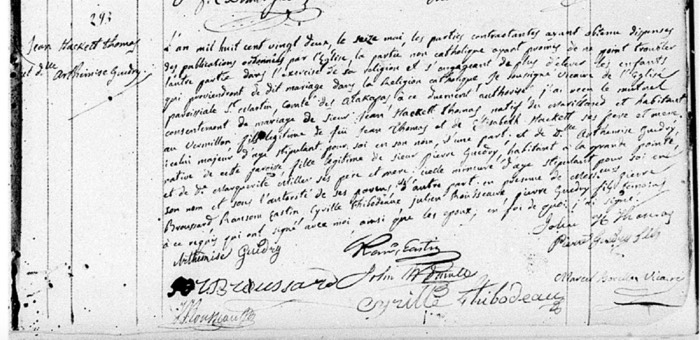 293
Jean Hackett Thomas
et dlle
Arthémise Guedry
L'an mil huit cent vingt deux, le seize mai les parties contractantes ayant obtenu dispenses
des publications ordonnées par l'Eglise, la partie non catholique ayant promis de ne point troubler
l'autre partie dans l'exercise de sa religion et s'engageant de plus d'élever les enfants
qui proviendront de dit mariage dans la religion catholique Je soussigné vicaire de l'Eglise
paroissiale St. Martin, Comté des Attakapas à ce duement authorisé j'ai reçu le mutuel
consentement de mariage de Sieur Jean Hackett Thomas natif du Mariland et habitant
au Vermillon fils légitime de feu Jean Thomas et de Elisabeth Hackett ses père et mere,
icelui majeur d'age stipulant pour soi en son nom, d'une part; et de dlle Arthemise Guedry,
native de cette paroisse fille legitime de Sieur pierre Guedry habitant à la grande pointe,
et de de margueritte ses pere et mere: icelle mineure d'age stipulant pour soi en
son nom et sous l'autorité de ses parens d'autre part: en présence de pierre
Broussard Ransom Eastin, Cyrille Thibodeaux julien Rousseaux pierre Guedry fils temoins
à ce requis qui ont signé avec moi ainsi que les epoux, en foi de quoi j'ai signé.
Arthemise Guedry
Rans. Eastin
John H Thomas
Pierre Guedry fils
Broussard
John
Marcel Vicaire
Cyrill Thibodeau
J. Rousseau